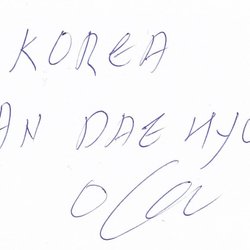 KOREA
AN DAE HYO